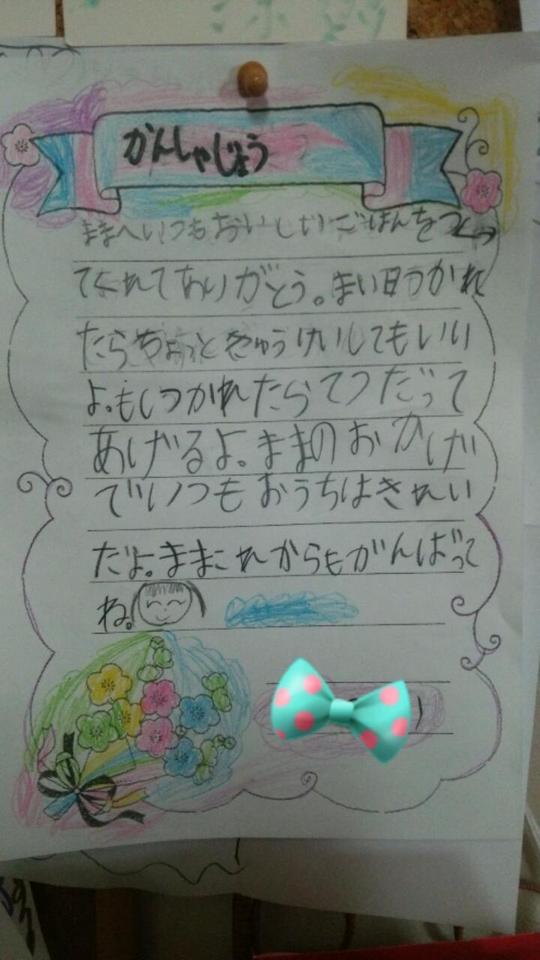 かんしゃじょう
ままへいつもおいしいごはんをつくっ
てくれてありがとう。まい日つかれ
たらちょっときゅうけいしてもいい
よ。もしつかれたらてつだって
あげるよ。ままのおかげ
でいつもおうちはきれい
だよ。ままこれからもがんばって
ね。